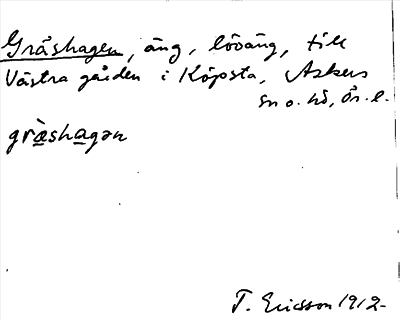 Gråshagen, äng, löväng, till
Västra gården i Köpsta, Askers
sn o. hd, Ör. l.
gràshagən
T. Ericsson 1912